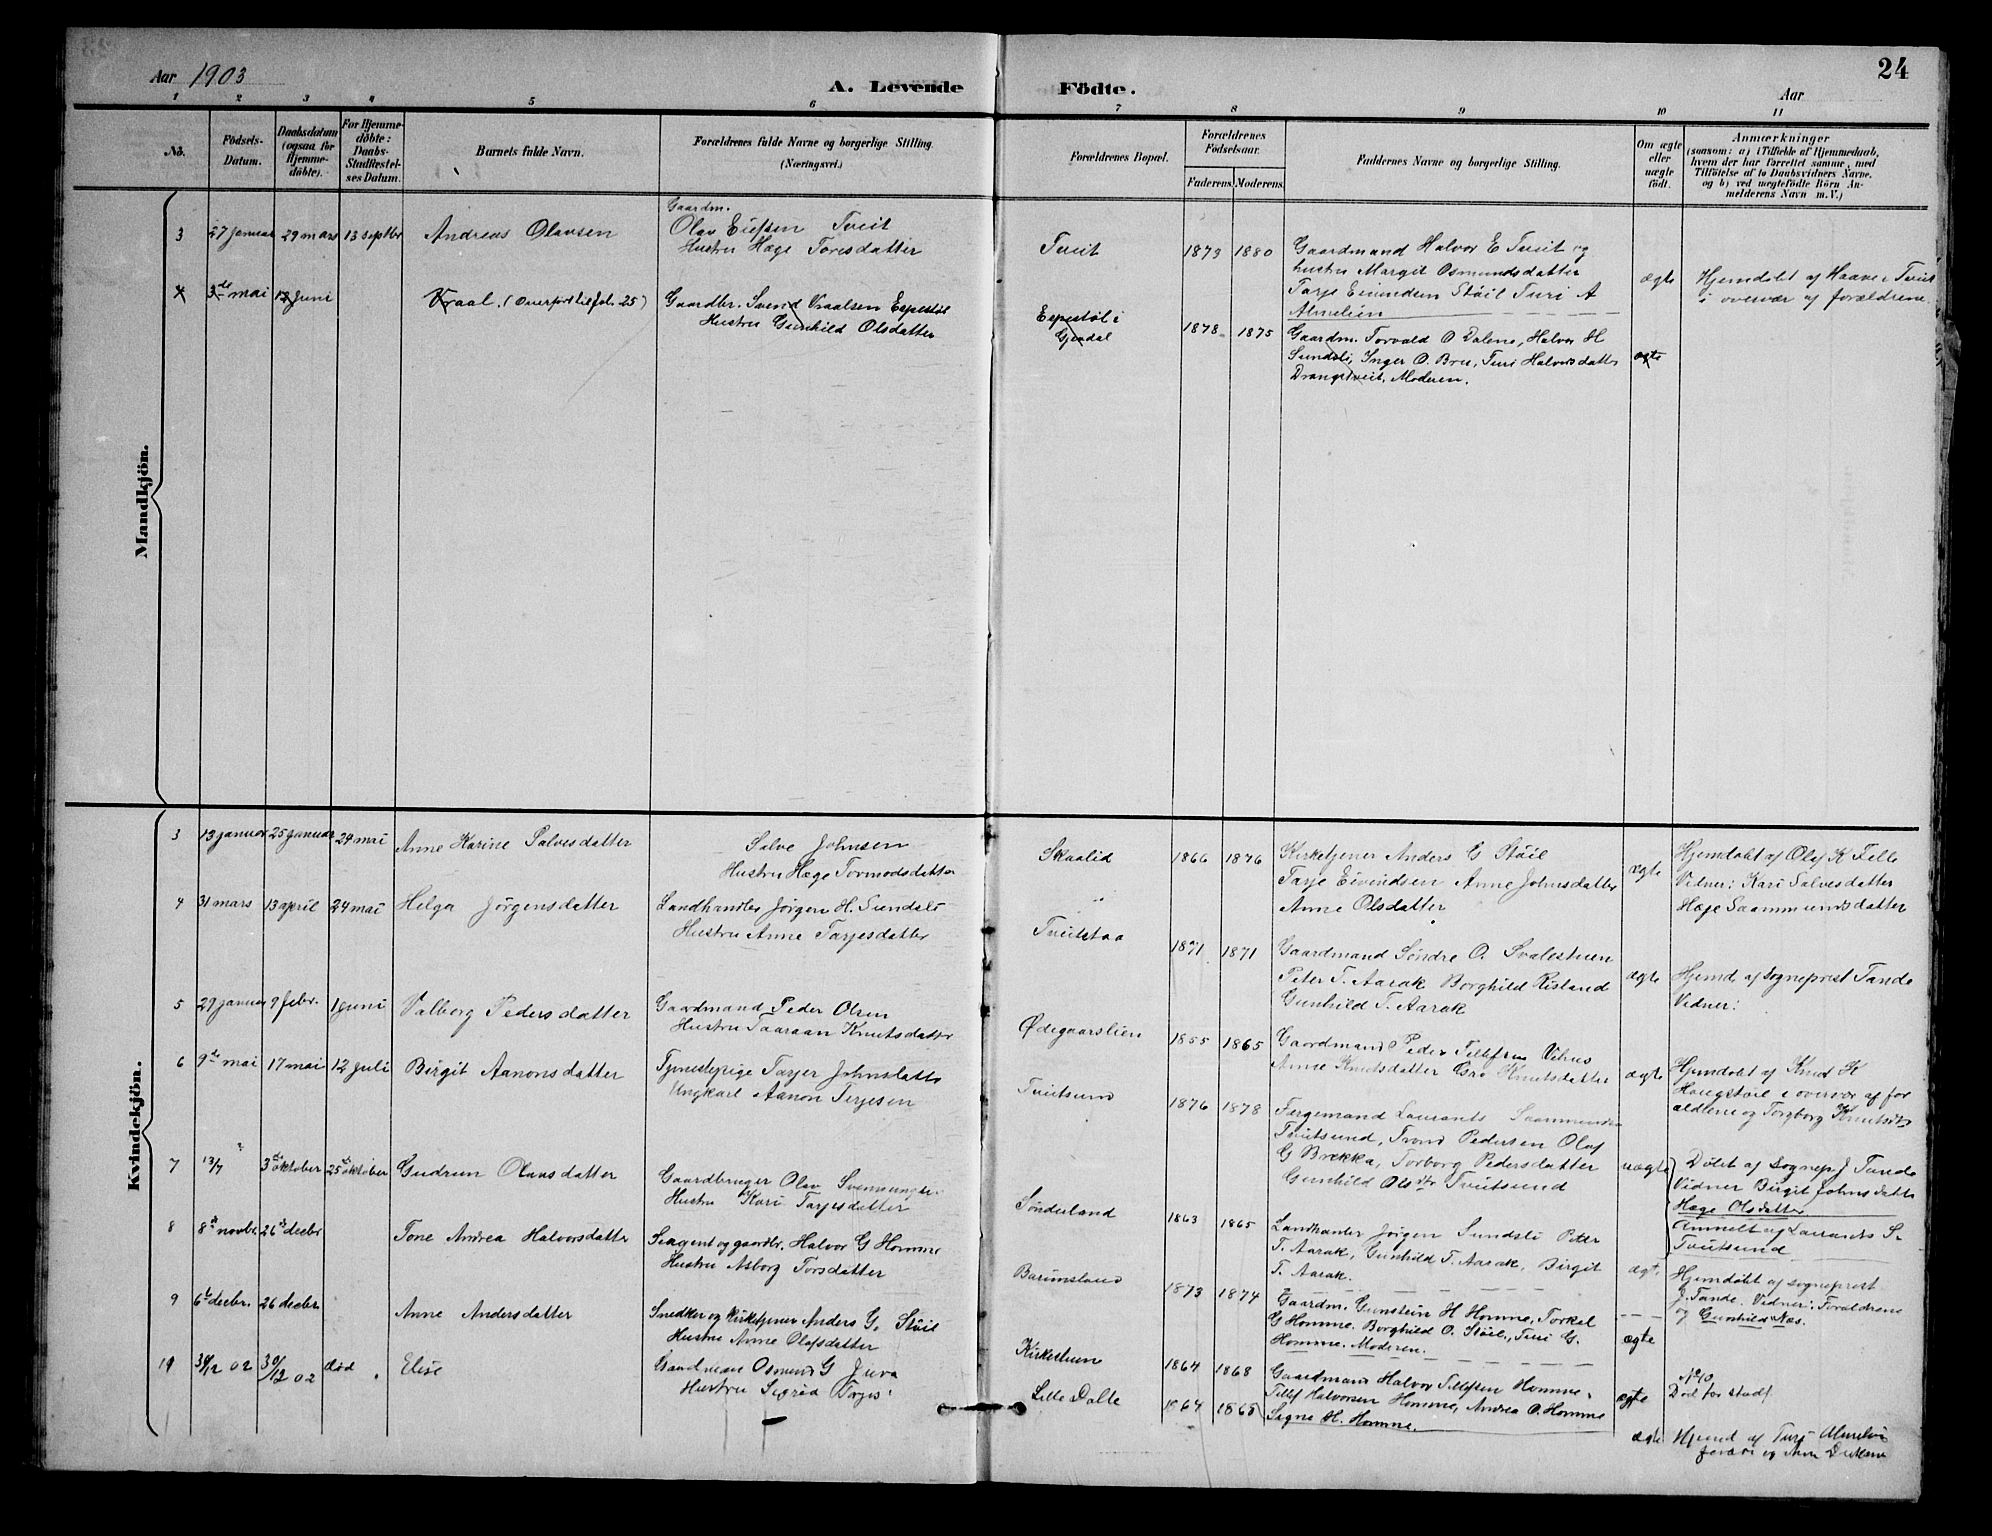 Aar 1903
A. Levende
Födte.
Aar
24
1 2 3 4 5 6 7 8 9 10 11
No.
Födsels-Datum.
Daabsdatum (ogsaa for Hjemme-döbte).
For Hjemme-döbte: Daabs-Stadfæstel-ses Datum.
Barnets fulde Navn.
Forældrenes fulde Navne og borgerlige Stilling. (Næringsvei.)
Forældrenes Bopæl.
Forældrenes Födselsaar.
Faderens. Moderens.
Faddernes Navne og borgerlige Stilling.
Om ægte eller uægte födt.
Anmærkninger
(saasom: a) i Tilfælde af Hjemmedaab,
hvem der har forrettet samme, med
Tilföielse af to Daabsvidners Navne,
og b) ved uægtefödte Börn An-
melderens Navn m. V.)
Mandkjön.
3 27 januar 29 mars 13 septbr Andreas Olavsen
Gaardm.
Olav Tveit
Hustru Hæge Toresdatter
Tveit 1873 1880
Gaardmand Halvor E Tveit og
hustru Margit Osmundsdatter
Tarje Eivindsen Stöil Turi A
ægte
Hjemdöbt af Haave Tveit
i overvær af forældrene.
4 3de mai juni Vraal. (Overfört til fol. 25)
Gaardbr. Svend Vraalsen Espestöl
Hustru Gunhild Olsdatter
Espestöl i
Gjevdal
1878 1875
Gaardm. Torvald O Dalene, Halvor H
Sundsli, Inger O. Bru, Turi Halvorsdatter
Moderen.
ægte
Kvindekjön.
3 13 januar 25 januar 24 mai Anne Karine Salvesdatter
Salve Johnsen
Hustru Hæge Tormodsdatter
Skaalid 1866 1876
Kirketjener Anders G Stöil
Tarje Eivindsen Anne Johnsdatter
Anne Olsdatter
ægte
Hjemdöbt af Olaf K Felle
Vidner: Kari Salvesdatter
Hæge Saammundsdatter
4 31 mars 13 april 24 mai Helga Jörgensdatter
Landhandler Jörgen H. Sundsli
Hustru Anne Tarjesdatter
Tveitstaa 1871 1871
Gaardmand Söndre O. Svalestuen
Peter T. Aarak Borghild Risland
Gunhild T. Aarak
ægte
Hjemd. af Sogneprest Tande
Vidner:
5 29 januar 9 febr. 1 juni Valborg Pedersdatter
Gaardmand Peder Olsen
Hustru Taaraan Knutsdatter
Ødegaarslien 1855 1865
Gaardmand Peder Tellefsen
Anne Knudsdatter Gro Knutsdatter
ægte
Hjemdöbt af Knud K
Haugstöil i overvær af for
ældrene og Torgborg Knutsdtr
6 9de mai 17 mai 12 juli Birgit Aanonsdatter
Tjenestepige Tarjer Johnsdatter
Ungkarl Aanon Terjesen
Tveitsund 1876 1878
Færgemand Laurants
Tveitsund, Trond Pedersen Olaf
G Brekka, Torborg Pedersdatter
Gunhild Olsdtr Tveitsund
uægte
Döbt af Sognep. J Tande
Vidner Birgit Johnsdatter
Hæge Olsdatter
Anmelt af Laurants S.
Tveitsund
7 13/7 3de oktober 25de oktober Gudrun Olavsdatter
Gaardbruger Olav
Hustru Kari Tarjesdatter
Sönderland 1863 1865
Landhandler Jörgen Sundsli Peter
T. Aarak, Gunhild T. Aarak, Birgit
T. Aarak.
ægte
Hjemdöbt af sogneprest
J. Tande. Vidner: Forældrene
og Gunhild Næs.
8 8de novbr. 26de decbr Tone Andrea Halvorsdatter
Seagent og gaardbr. Halvor G Homme
Hustru Asborg Torsdatter
1873 1874
Gaardm. Gunstein H Homme, Torkel
G Homme. Borghild O. Stöil, Turi G.
Homme. Moderen.
ægte
9 6te decbr. 26 decbr. Anne Andersdatter
Snedker og kirketjener Anders G. Stöil
Hustru Anne Olafsdatter
Kirkestuen 1864 1868
Gaardmand Halvor Tellefsen Homme.
Tellef Halvorsen Homme, Andrea O. Homme
Signe H. Homme.
ægte
No 10.
Död för stadf.
19 30/12 02 30/12 02 död Elise
Gaardman Osmund G Juva
Hustru Sigrid
Lille Dalte 1864 1868
ægte
Hjemd af Turi